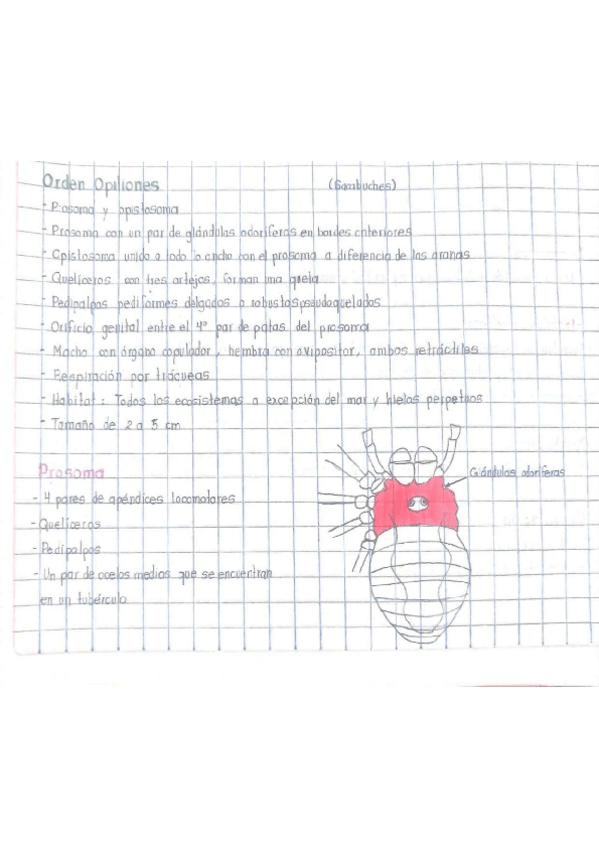 Orden Opiliones
(Sambuches)
- Prosoma y opistosoma
- Prosoma con un par de glándulas odoríferas en bordes anteriores
- Opistosoma unido a todo lo ancho con el prosoma a diferencia de las arañas
- Quelíceros con tres artejos, forman una quela
- Pedipalpos pediformes delgados o robustos pseudoquelados
- Orificio genital entre el 4º par de patas del prosoma
- Macho con órgano copulador, hembra con ovipositor, ambos retráctiles
- Respiración por tráqueas
- Habitat: Todos los ecosistemas a excepción del mar y hielos perpetuos
- Tamaño de 2 a 5 cm
Prosoma
Glándulas odoríferas
- 4 pares de apéndices locomotores
- Quelíceros
- Pedipalpos
- Un par de ocelos medios que se encuentran
en un tubérculo